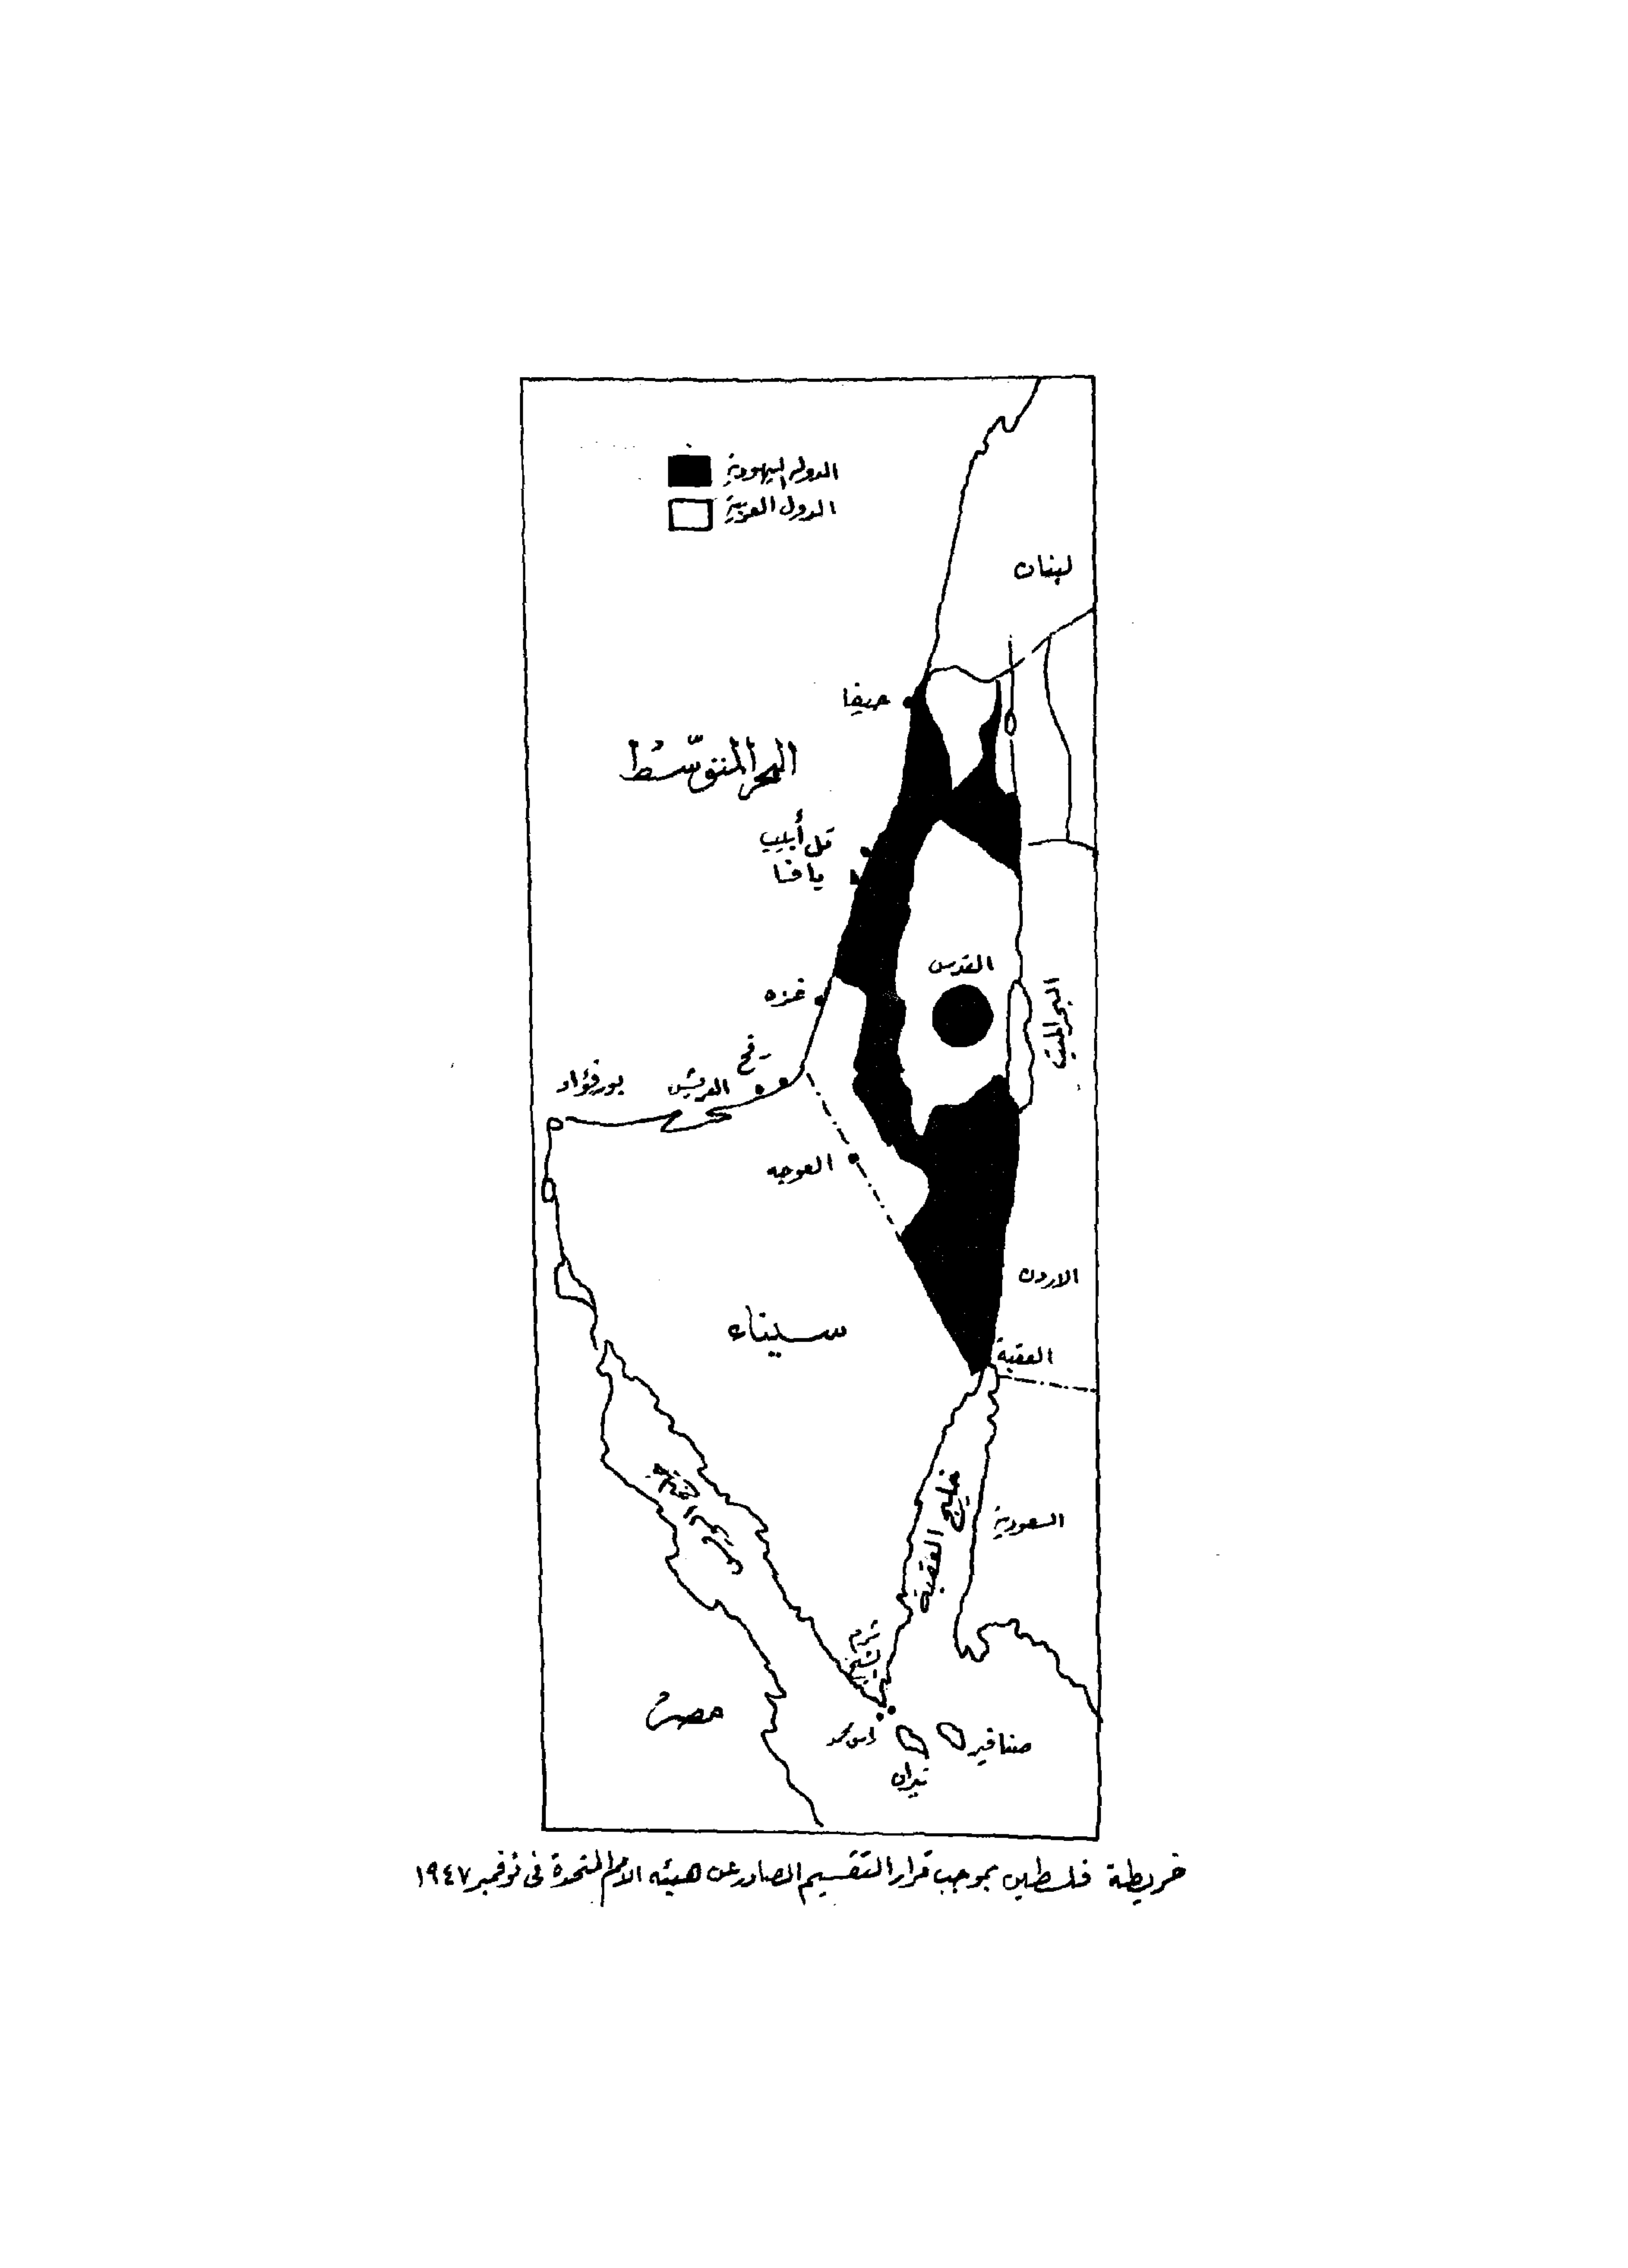 الدولة اليهودية
الدول العربية
لبنان
حيفا
البحر المتوسط
تل أبيب
يافا
القدس
غزه
البحر الميت
رفح
العريش
بورفؤاد
العوجه
الاردن
سيناء
العقبة
خليج العقبة
السعودية
شرم الشيخ
مصر
راس محمد
صنافير
تيران
خريطة فلسطين بموجب قرار التقسيم الصادر عن هيئه الامم المتحدة فى نوفمبر ١٩٤٧